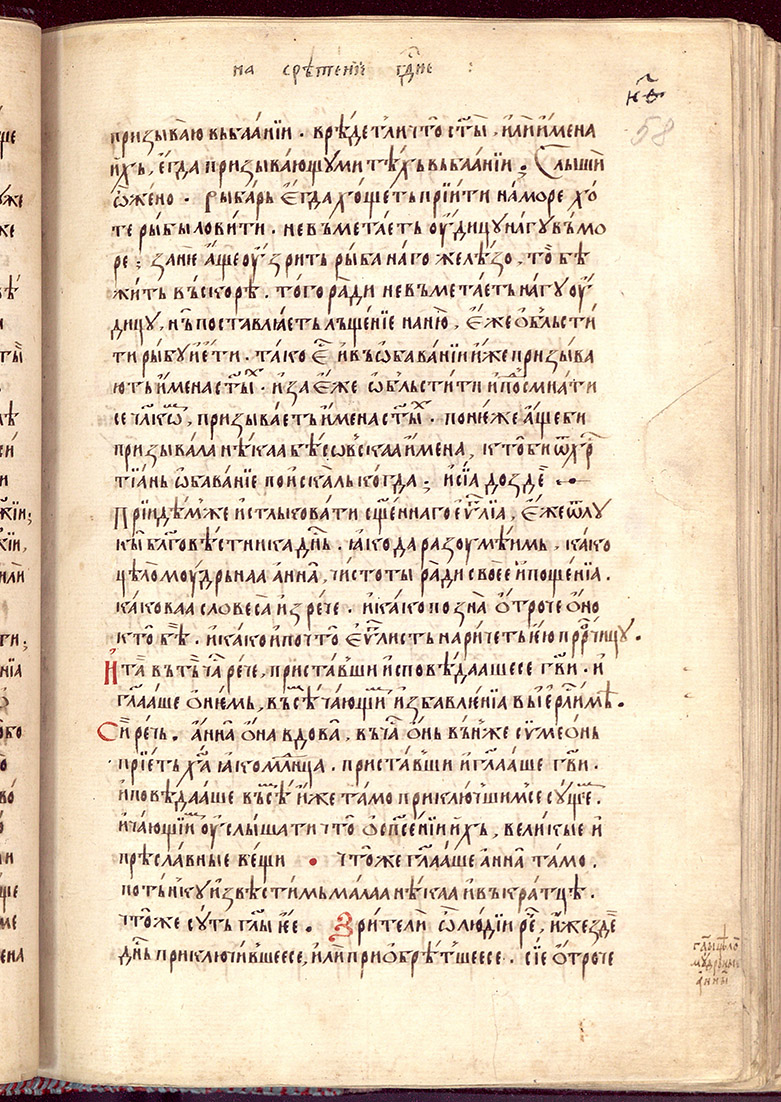 на срѣтенїе гдн҃е :
н҃ѳ
58
призываю въбаанїи · врѣде т ли что ст҃ы , или имена
ихъ, егда призывающуми тѣхъ въбаанїи ; Слыши
ѡ жено · рыбарь егда хощеть прїити на море хо
те рыбы ловити · не въметаеть оудицу нагу въ мо
ре ; зание аще оузрить рыба наго желѣзо , то бѣ
жить въскорѣ . того ради не въметаеть нагу оу
дицу , нъ поставлꙗеть лъщенїе на ню , еже обльсти
ти рыбу и ꙗти · тако е҃ и въ ѡбаванїи иже призыва
ють имена ст҃ых · и за еже ѡбльстити и помиати
се чл҃ком , призываеть имена ст҃ых · понеже аще би
призывала нѣкаа бѣсовскаа имена , кто би ѿ хр҃
тїань ѡбаванїе поискаль когда ; и сїа до зде
Прїидѣм же и стлъковати сщ҃еннаго еѵ҃лїа , еже ѿ лу
кы бл҃говѣстника дн҃ь . ꙗко да разоумѣимь , како
цѣломоудрьнаа анна , чистоты ради своее и пощенїа .
каковаа словеса изрече . и како позна отроче оно
кто бѣ . и како и почто еѵ҃листь наричеть ю прр҃чицу .
И та въ тъ ча рече , приставши исповѣдаашесе гв҃и . и
гл҃ааше о ниемь , въсѣ чающим избавленїа въ иер҃лимѣ .
Сирѣчь . анна она вдова , въ ча онь вън же сѵмеонь
прїеть ха҃ ꙗко младнца . приставши и гл҃ааше гв҃и .
исповѣдааше въсѣ иже тамо приключшимсе суще .
и чающїим оуслышати что о спс҃енїи ихъ , великые и
прѣславные вещи · что же гл҃ааше анна тамо .
потънку известимь малаа нѣкаа и въкратцѣ .
что же суть гл҃ы ее · Зрителїи ѡ людїи ре҃ , иже зде
дн҃ь приключившеесе , или приобрѣтшеесе . сїе отроче
гл҃ы цѣло
мудрьные
анны